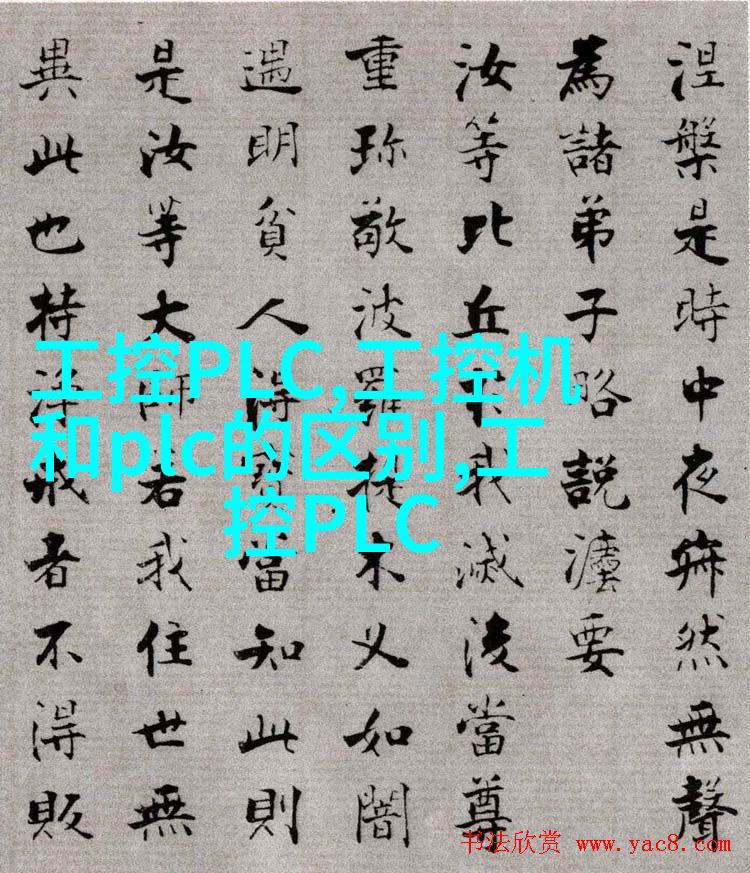 涅槃是時中夜寂然無聲
為諸弟子略説灋要
汝等比丘於我滅後當尊
重珍敬波羅提木叉如闇
遇明貧人得寶當知此則
是汝等大師若我住世無
異此也持淨戒者不得販
工控PLC,工控机
和plc的区别,工
控PLC
书法欣赏 www.yac8.com